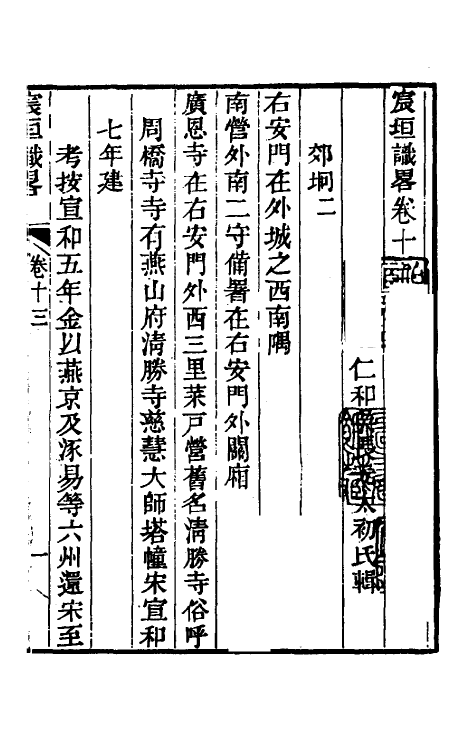 宸垣識畧卷十
仁和 太初氏輯
郊坰二
右安門在外城之西南隅
南營外南二守備署在右安門外關廂
廣恩寺在右安門外西三里菜戸營舊名淸勝寺俗呼
周橋寺寺有燕山府淸勝寺慈慧大師塔幢宋宣和
七年建
考按宣和五年金以燕京及涿易等六州還宋至
宸垣識畧 卷十三 一